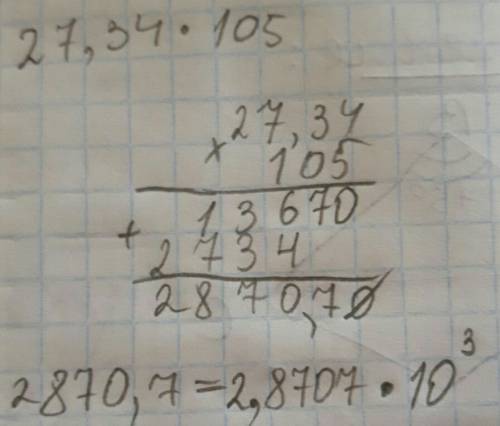 27,34 · 105
27,34
× 105
13670
+ 2734
2870,70
2870,7 = 2,8707 · 10³